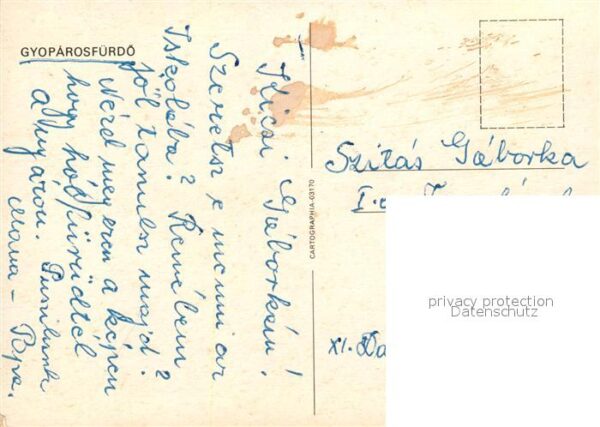 GYOPÁROSFÜRDŐ
Kicsi Gáborkám!
Szeretsz e menni az
Iskolába? Remélem
jól tanulsz majd?
Nézd meg ezen a képen
hogy hol fürödtél
a nyáron. Puszilunk
Mama – Papa.
CARTOGRAPHIA-03170
Szitás Gáborka
I. o.
XI.
privacy protection
Datenschutz